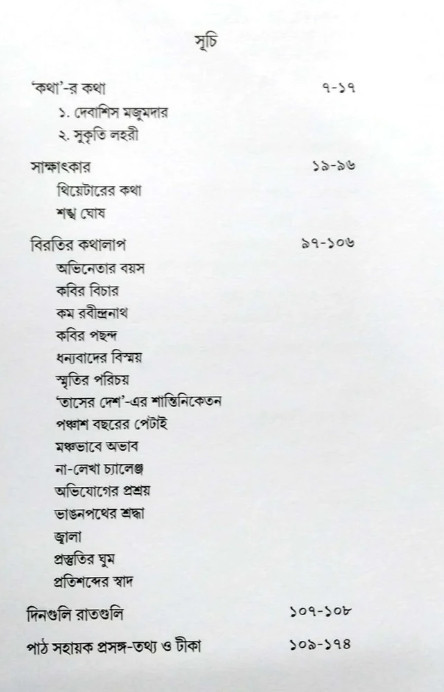 সূচি
‘কথা’-র কথা ৭-১৭
১. দেবাশিস মজুমদার
২. সুকৃতি লহরী
সাক্ষাৎকার ১৯-৯৬
থিয়েটারের কথা
শঙ্খ ঘোষ
বিরতির কথালাপ ৯৭-১০৬
অভিনেতার বয়স
কবির বিচার
কম রবীন্দ্রনাথ
কবির পছন্দ
ধন্যবাদের বিস্ময়
স্মৃতির পরিচয়
‘তাসের দেশ’-এর শান্তিনিকেতন
পঞ্চাশ বছরের পেটাই
মঞ্চভাবে অভাব
না-লেখা চ্যালেঞ্জ
অভিযোগের প্রশ্রয়
ভাঙনপথের শ্রদ্ধা
জ্বালা
প্রস্তুতির ঘুম
প্রতিশব্দের স্বাদ
দিনগুলি রাতগুলি ১০৭-১০৮
পাঠ সহায়ক প্রসঙ্গ-তথ্য ও টীকা ১০৯-১৭৪